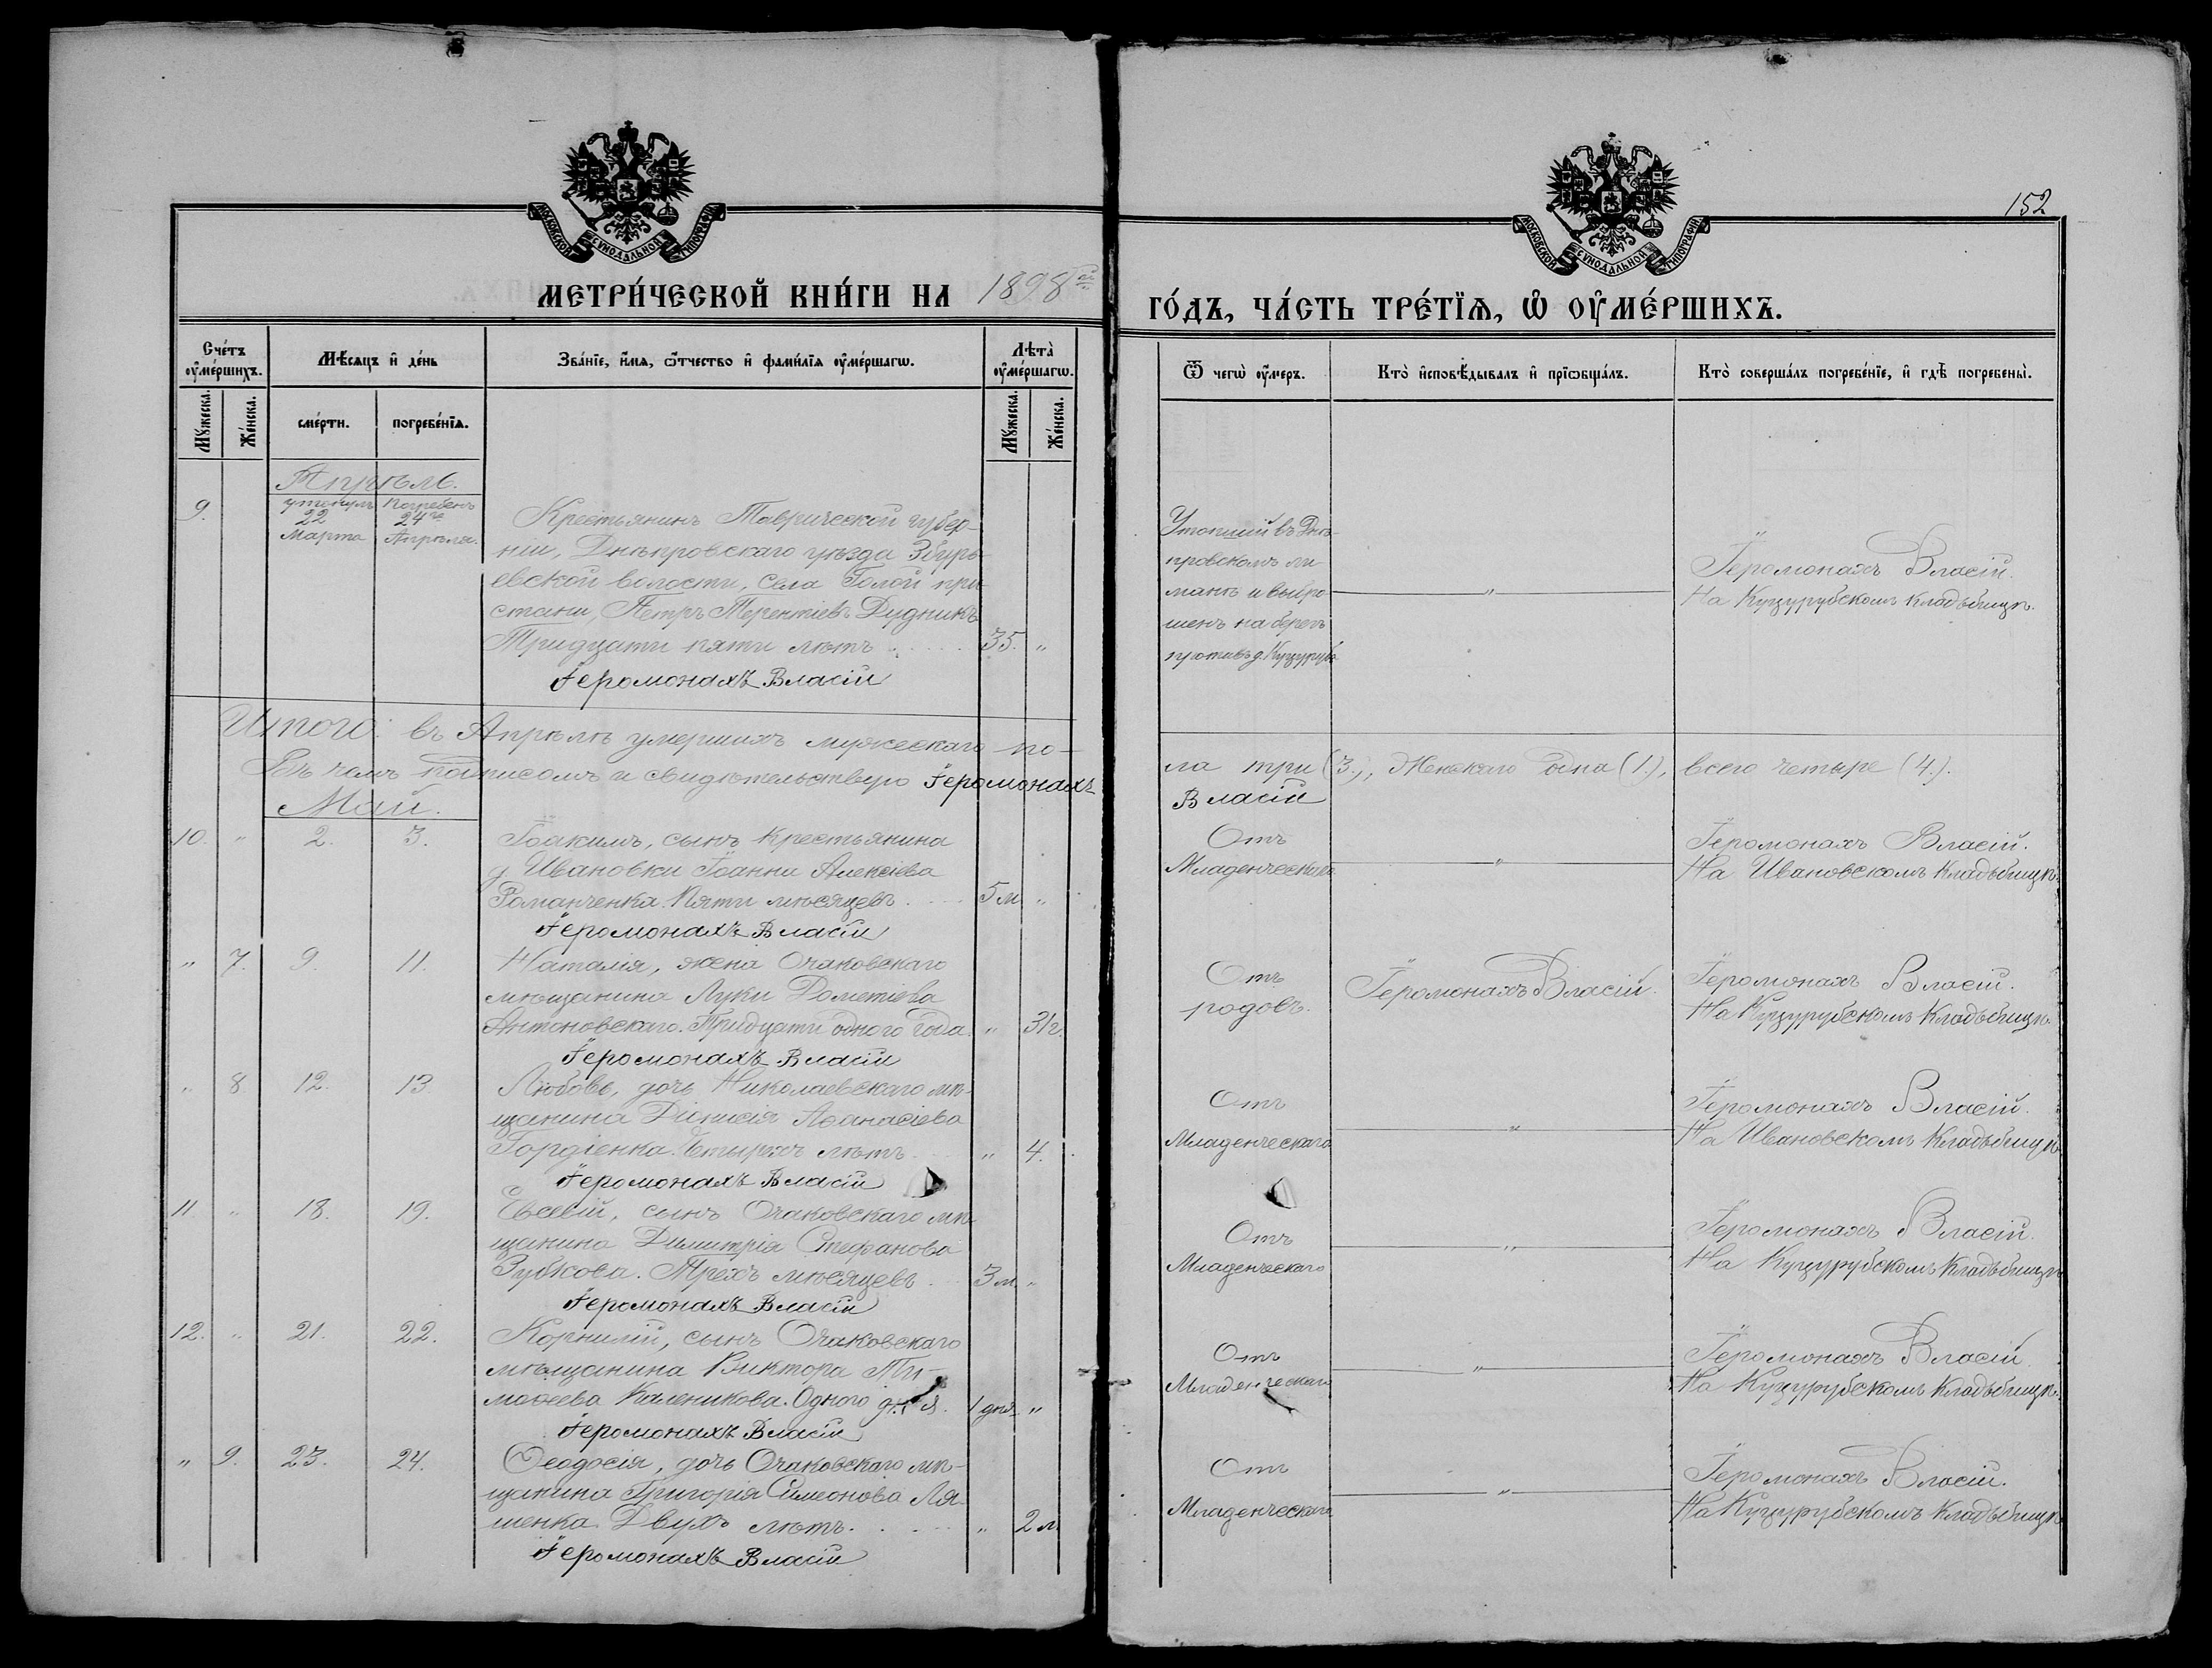 152
МОСКОВСКОЙ СУНОДАЛЬНОЙ ТИПОГРАФІИ
МОСКОВСКОЙ СУНОДАЛЬНОЙ ТИПОГРАФІИ
МЕТРИ́ЧЕСКОЙ КНИ́ГИ НА 1898й ГО́ДЪ, ЧА́СТЬ ТРЕ́ТІѦ, Ѡ ОУМЕ́РШИХЪ.
Сче́тъ оуме́ршихъ.
Мѣ́сяцъ и де́нь
Зва́ніе, и́мѧ, ѻ҆́тчество и фами́лїѧ оуме́ршагѡ.
Лѣта̀ оуме́ршагѡ.
Ѿ чегѡ̀ оу́меръ.
Кто̀ исповѣ́дывалъ и прїѡбща́лъ.
Кто̀ соверша́лъ погребе́нїе, и гдѣ̀ погребены̀.
Мꙋ́жеска.
Же́нска.
сме́рти.
погребе́нїѧ.
Мꙋ́жеска.
Же́нска.
Апрѣль.
9.
утонулъ 22 Марта
Погребенъ 24го Апрѣля.
Крестьянинъ Таврической губер-
ніи, Днѣпровскаго уѣзда Збурь-
евской волости, села Голой при
стани, Петръ Терентіевъ Дудникъ
Тридцати пяти лѣтъ 35. "
Іеромонахъ Власій
Утопшій въ Днѣ-
провскомъ ли
манѣ и выбро
шенъ на берегъ
противъ д. Куцуруба
"
Іеромонахъ Власій.
На Куцурубскомъ кладбищѣ.
Итого: въ Апрѣлѣ умершихъ мужескаго по-
ла три (3.), Женскаго одна (1.), всего четыре (4.).
Въ чемъ подписомъ и свидѣтельствую Іеромонахъ
Власій
Май.
10. " 2. 3.
Іоакимъ, сынъ крестьянина
д. Ивановки Іоанна Алексіева
Романченка. Пяти мѣсяцевъ. 5 м "
Іеромонахъ Власій
Отъ
Младенческаго
"
Іеромонахъ Власій.
На Ивановскомъ Кладбищѣ.
" 7. 9. 11.
Наталія, жена Очаковскаго
мѣщанина Луки Дометіева
Антоновскаго. Тридцати одного года. " 31 г.
Іеромонахъ Власій
Отъ
родовъ.
Іеромонахъ Власій.
Іеромонахъ Власій.
На Куцурубскомъ Кладбищѣ.
" 8 12. 13
Любовь, дочь Николаевскаго мѣ-
щанина Діонисія Аѳанасіева
Гордіенка. Четырехъ лѣтъ. " 4.
Іеромонахъ Власій
Отъ
Младенческаго
"
Іеромонахъ Власій.
На Ивановскомъ Кладбищѣ
11 " 18. 19.
Евсевій, сынъ Очаковскаго мѣ-
щанина Димитрія Стефанова
Зубкова. Трехъ мѣсяцевъ. 3 м "
Іеромонахъ Власій
Отъ
Младенческаго
"
Іеромонахъ Власій.
На Куцурубскомъ Кладбищѣ
12. " 21. 22.
Корнилій, сынъ Очаковскаго
мѣщанина Виктора Ти-
моѳеева Каленикова. Одного дня. 1 дня "
Іеромонахъ Власій
Отъ
Младенческаго
"
Іеромонахъ Власій
На Куцурубскомъ Кладбищѣ.
" 9. 23. 24.
Ѳеодосія, дочь Очаковскаго мѣ-
щанина Григорія Симеонова Ля-
шенка Двухъ лѣтъ. " 2 л
Іеромонахъ Власій
Отъ
Младенческаго
"
Іеромонахъ Власій.
На Куцурубскомъ Кладбищѣ